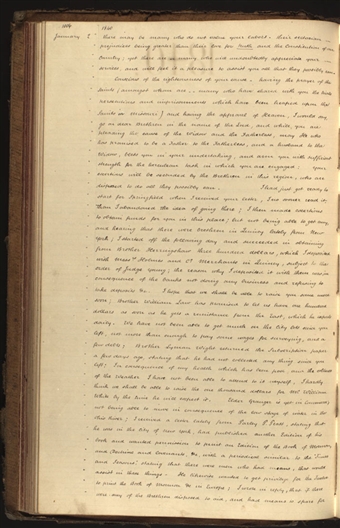 1840
January 2
there may be many who do not endure your
prejudices being greater than their love for truth and the Constitution of our
Country; yet there are many who will undoubtedly appreciate your
services, and will feel it a pleasure to assist you all that they possibly can.
Confident of the righteousness of your cause, having the prayer of the
Saints (amongst whom are many who have shared with you the
and imprisonments which have been heaped upon the
Saints in Missouri) and having the approval of Heaven, I would say
go on dear Brethren in the name of the Lord, and while you are
pleading the cause of the Widow and the Fatherless, may He who
has promised to be a Father to the Fatherless, and a husband to the
Widow, bless you in your undertaking, and arm you with sufficient
strength for the task in which you are engaged. Your
exertions will be seconded by the Brethren in this region, who are
disposed to do all they possibly can. I had just got ready to
start for Springfield when I received your letter, I no sooner read it,
than I abandoned the idea of going there; I then made exertions
to obtain funds for you in this place; but not being able to get any,
and hearing that there were Brethren in Quincy lately from New
York; I started off the following day and succeeded in obtaining
from Brother three hundred dollars, which I deposited
with Messrs Holmes and Co. Merchants in Quincy, subject to the
order of Judge Young; the reason why I deposited it with them was in
consequence of the banks not doing any business and refusing to
take deposits &c. I hope we shall be able to raise you some more
soon; Brother William Law has promised to let us have one hundred
dollars as soon as he gets a remittance from the East, which he expects
daily. We have not been able to get much on the City lots since you
left, not more than enough to pay some wages for surveying, and a
few debts; Brother Lyman Wight returned the Subscription paper
a few days ago, stating that he had not collected any thing since you
left; In consequence of my health, which has been poor, and the
of the Weather, I have not been able to attend to it myself, I hardly
think we shall be able to raise the one thousand dollars for Mr. William
White by the time he will expect it. Elder Granger is yet in Commerce
not being able to move in consequence of the low stage of water in the
Ohio River; I received a letter lately from Parley P. Pratt, stating that
he was in the City of New York, had published another Edition of his
book and wanted permission to print an Edition of the Book of Mormon,
and Doctrine and Covenants, &c, with a periodical similar to the Times
and Seasons; stating that there were men who had means, that would
assist in these things. He likewise wanted to get privilege for the Twelve
to print the Book of Mormon &c in Europe; I wrote in reply, that if there
were any of the Brethren disposed to aid, and had means to spare for